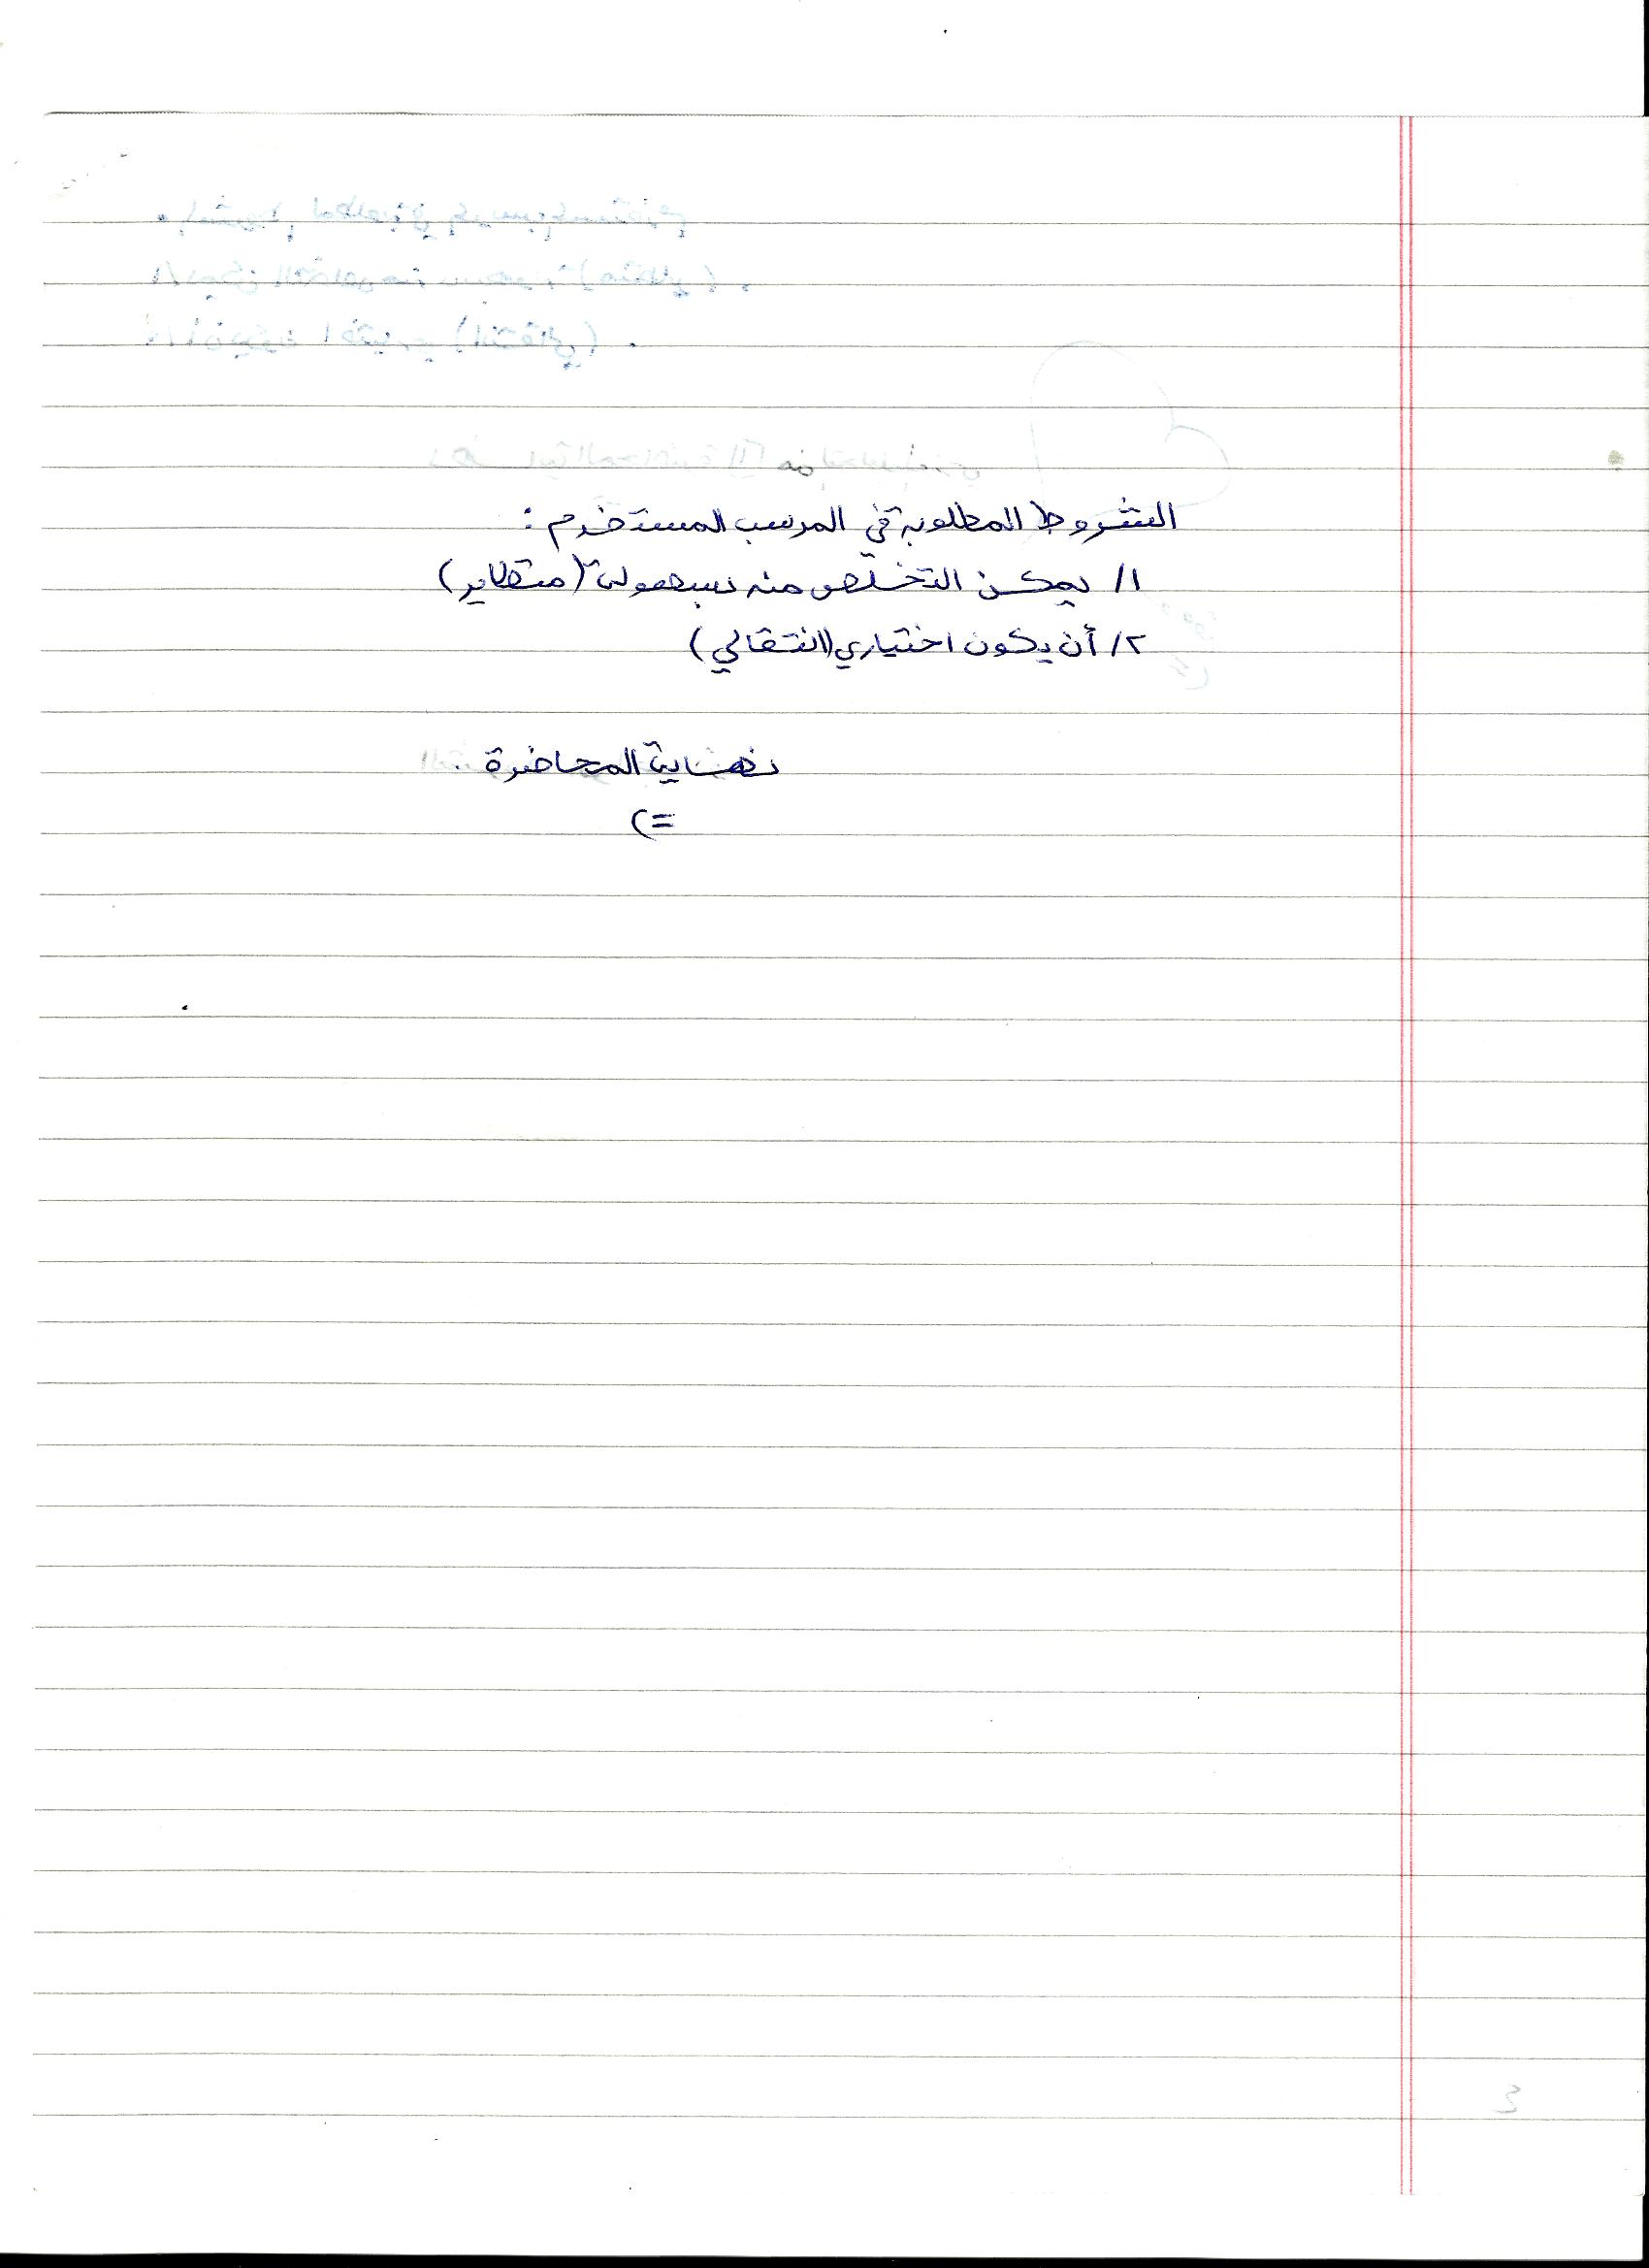 الشروط المطلوبة في المرسب المستخدم :
١/ يمكن التخلص منه بسهولة (متطاير)
٢/ أن يكون اختياري (انتقالي)
نهاية المحاضرة
(=